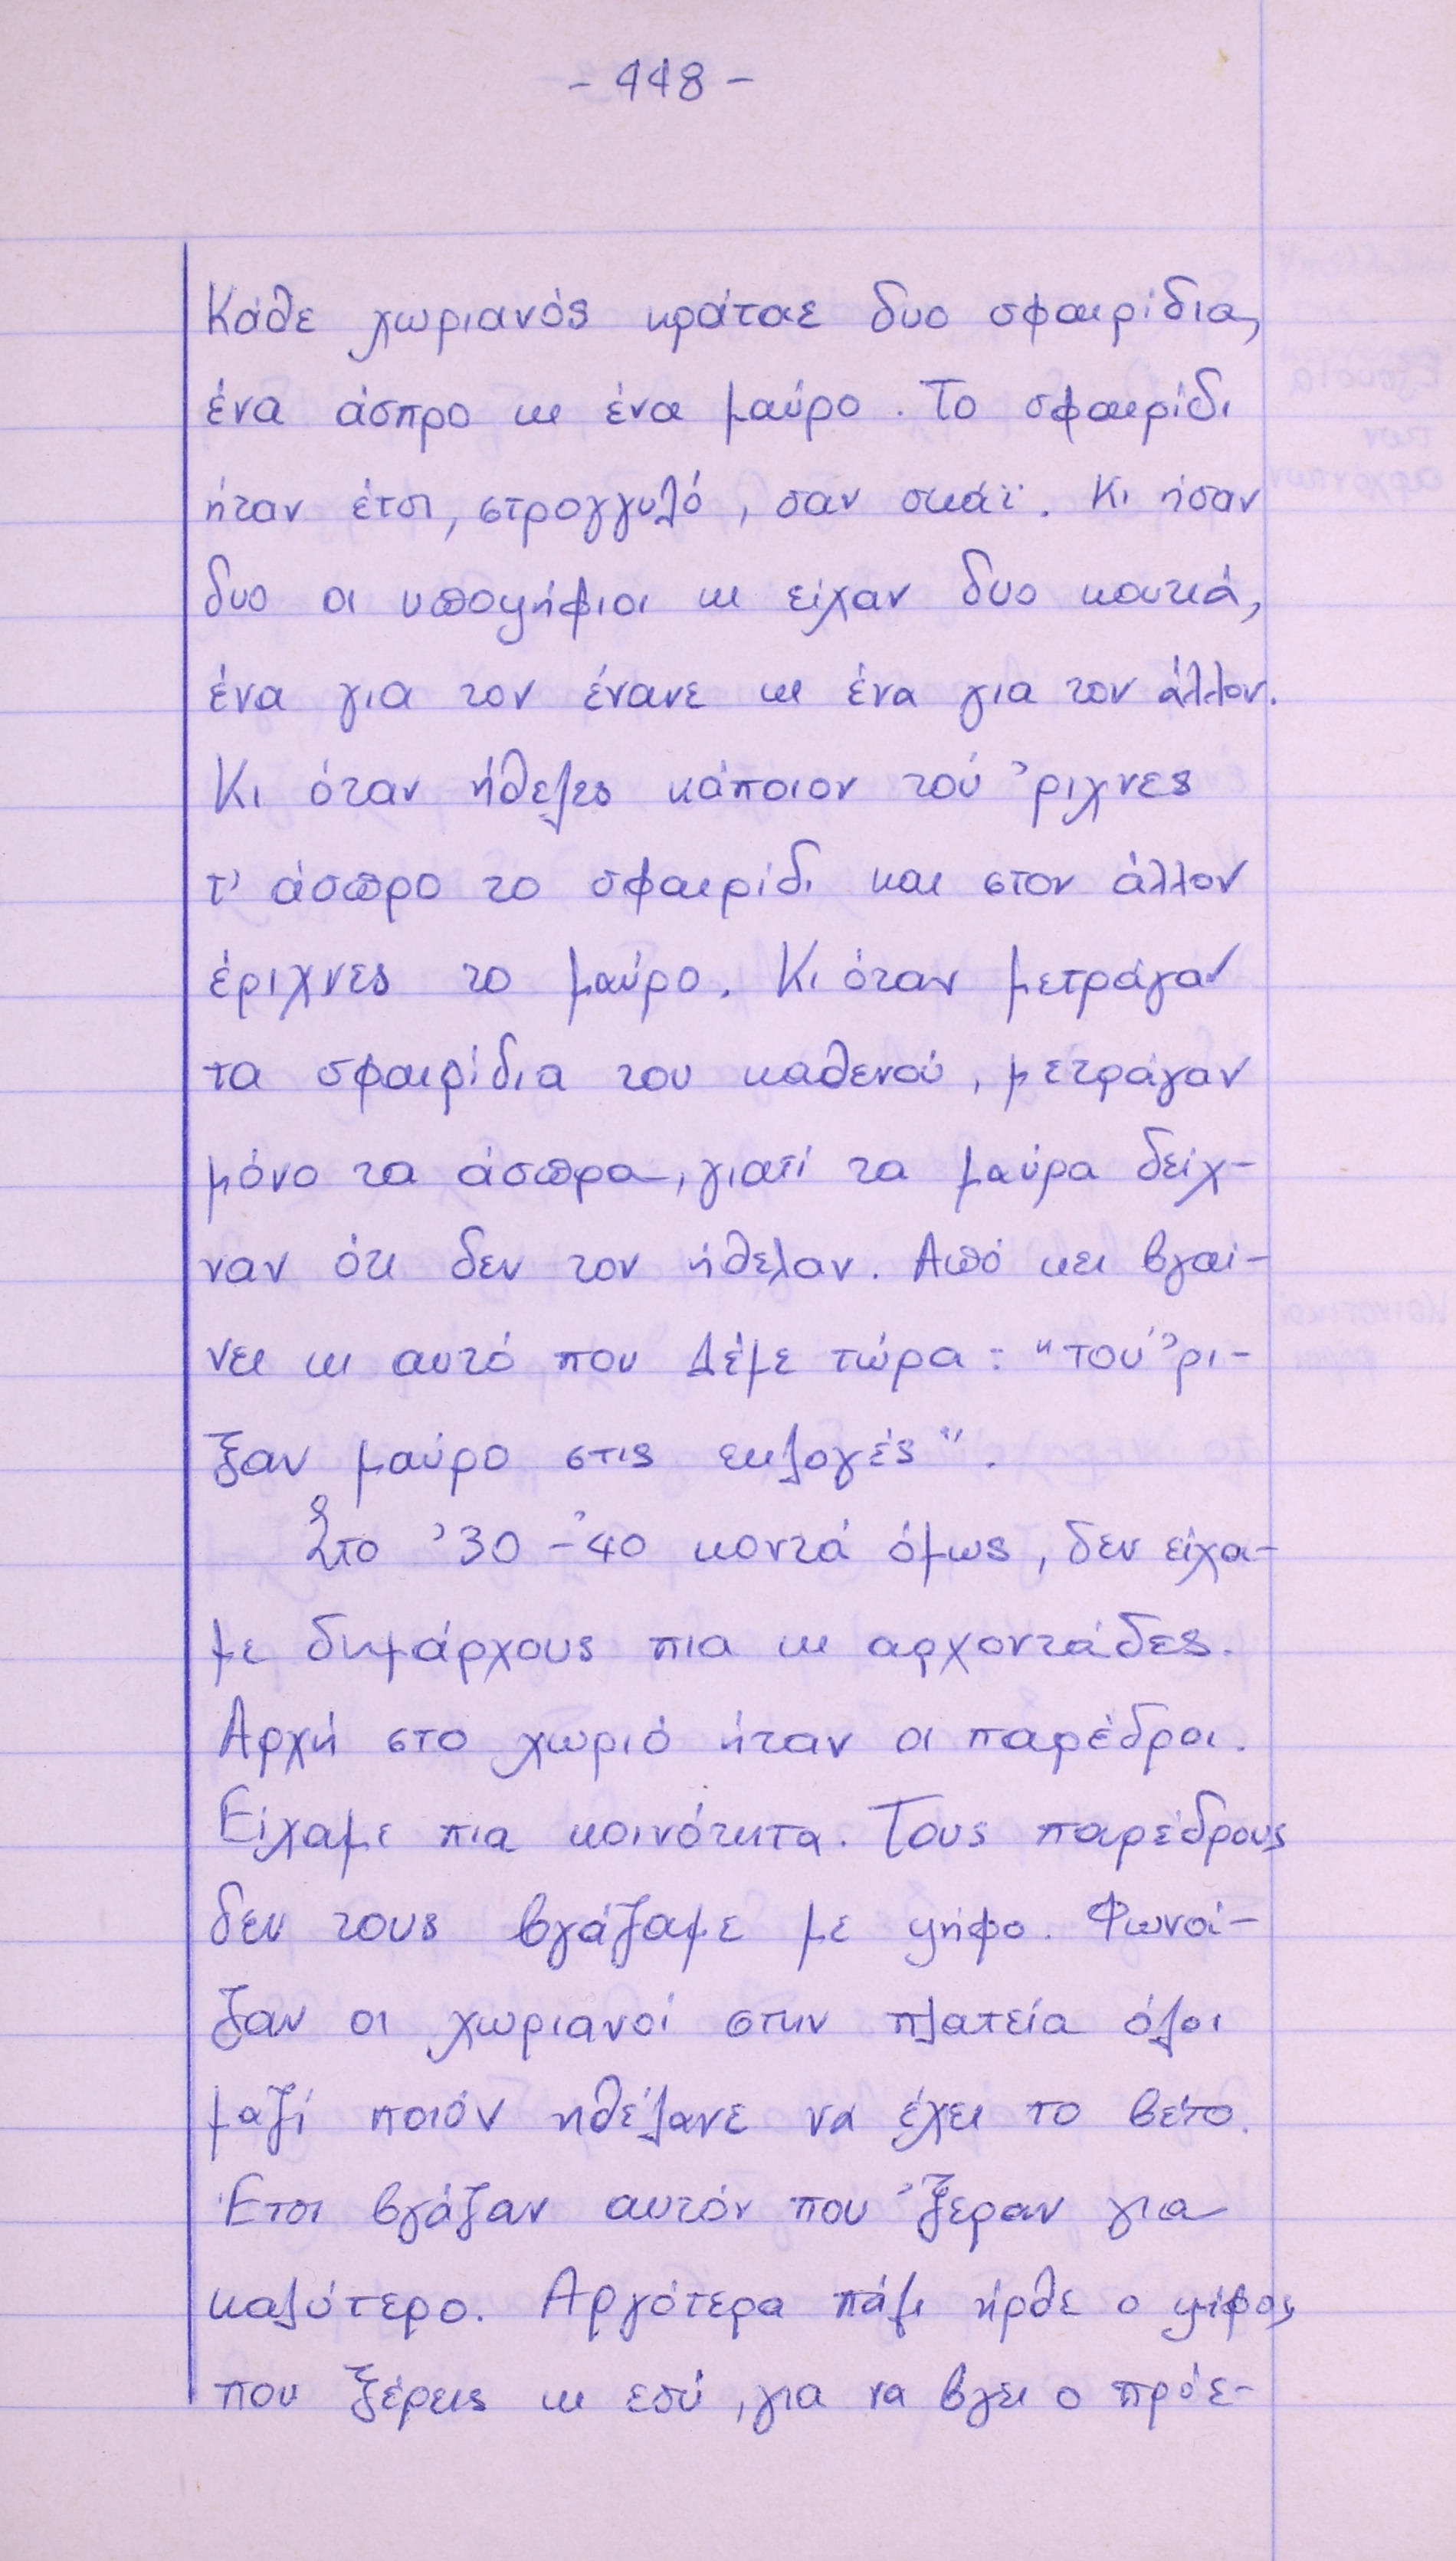 - 448 -
Κάθε χωριανός κράταε δυο σφαιρίδια,
ένα άσπρο κι ένα μαύρο. Το σφαιρίδι
ήταν έτσι, στρογγυλό, σαν σκάϊ. Κι ήσαν
δυο οι υποψήφιοι κι είχαν δυο κουτιά,
ένα για τον ένανε κι ένα για τον άλλον.
Κι όταν ήθελες κάποιον τού 'ριχνες
τ' άσπρο το σφαιρίδι και στον άλλον
έριχνες το μαύρο. Κι όταν μετράγαν
τα σφαιρίδια του καθενού, μετράγαν
μόνο τα άσπρα, γιατί τα μαύρα δείχ-
ναν ότι δεν τον ήθελαν. Από κει βγαί-
νει κι αυτό που λέμε τώρα: "τού 'ρι-
ξαν μαύρο στις εκλογές".
Στο '30 - '40 κοντά όμως, δεν είχα-
με δημάρχους πια κι αρχοντάδες.
Αρχή στο χωριό ήταν οι παρέδροι.
Είχαμε πια κοινότητα. Τους παρέδρους
δεν τους βγάζαμε με ψήφο. Φωνοί-
ζαν οι χωριανοί στην πλατεία όλοι
μαζί ποιόν ηθέλανε να έχει το βέτο.
Έτσι βγάζαν αυτόν που 'ξεραν για
καλύτερο. Αργότερα πάλι ήρθε ο ψήφος
που ξέρεις κι εσύ, για να βγει ο πρόε-